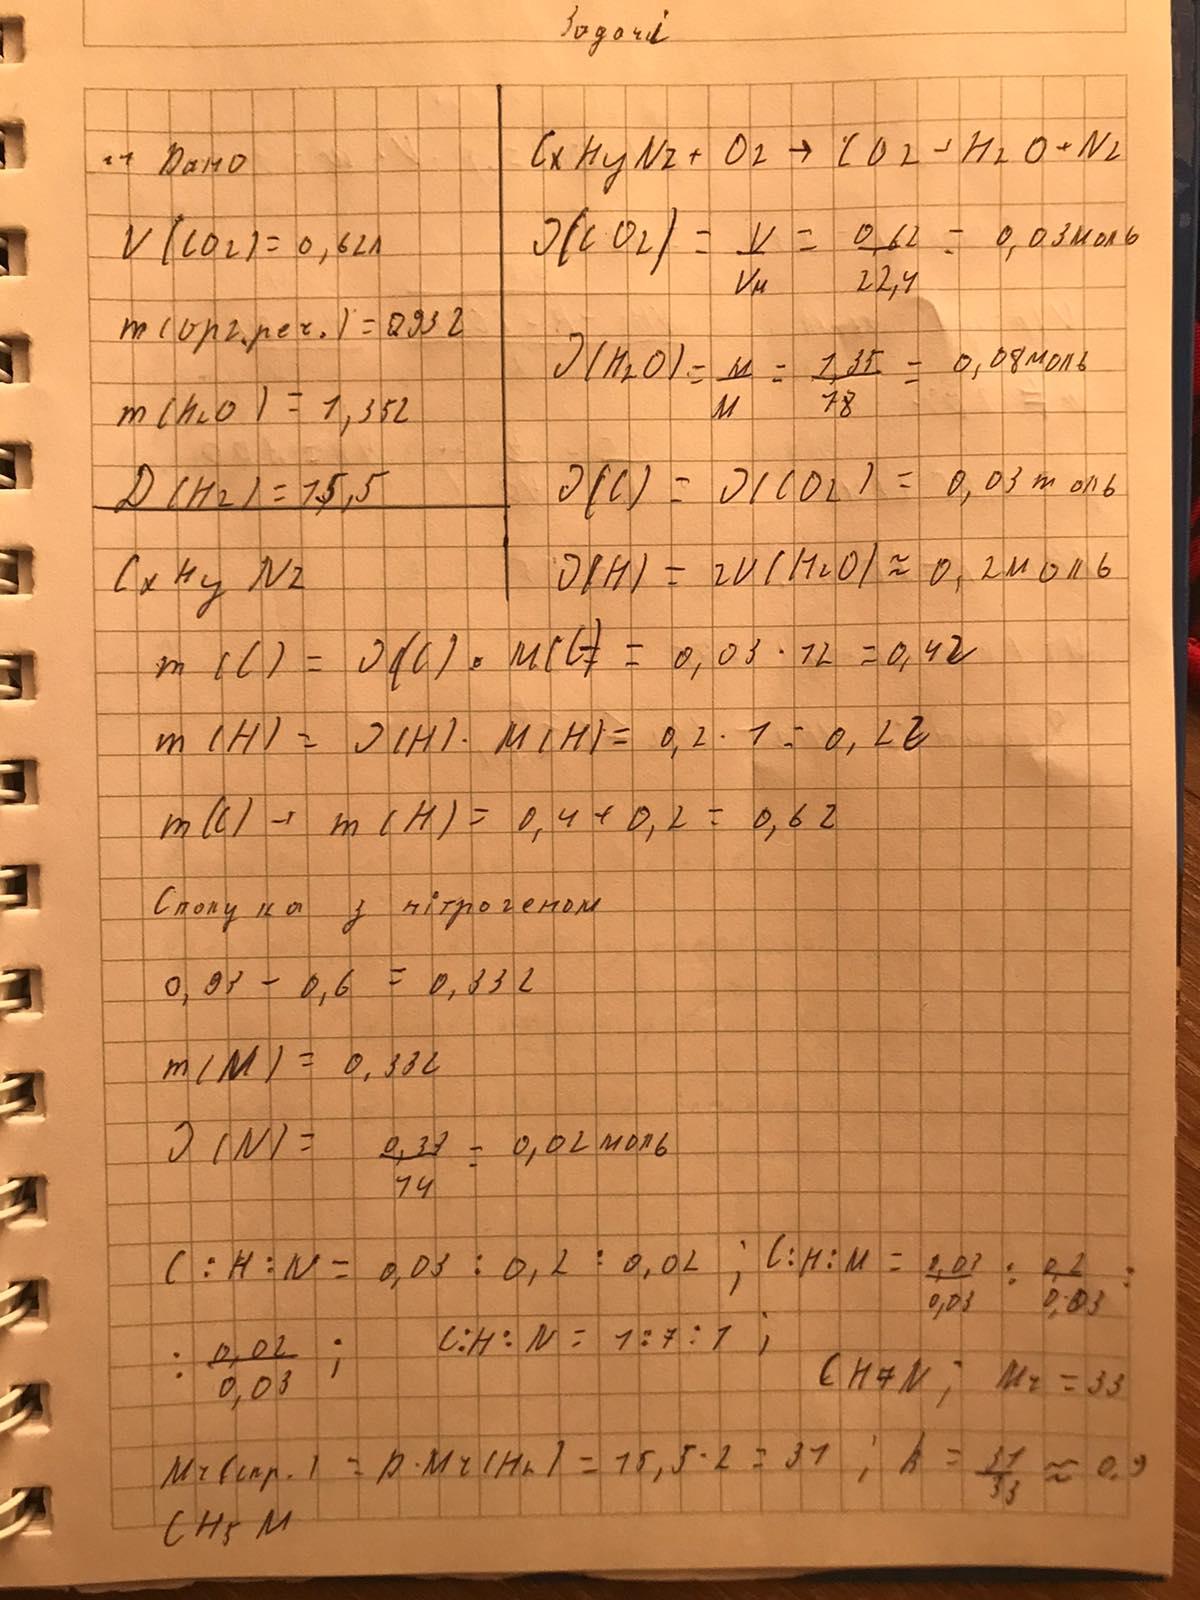 Задачі
1. Дано
V(CO2)=0,62л
m(орг.реч.)=0,93г
m(H2O)=1,35г
D(H2)=15,5
CxHyNz
CxHyNz+O2→CO2+H2O+N2
ν(CO2)=V/Vм=0,62/22,4=0,03моль
ν(H2O)=м/М=1,35/18=0,08моль
ν(C)=ν(CO2)=0,03моль
ν(H)=2ν(H2O)≈0,2моль
m(C)=ν(C)·М(C)==0,03·12=0,4г
m(H)=ν(H)·М(H)=0,2·1=0,2г
m(C)+m(H)=0,4+0,2=0,6г
Сполука з нітрогеном
0,93-0,6=0,33г
m(N)=0,33г
ν(N)=0,33/14=0,02моль
C:H:N=0,03:0,2:0,02; C:H:N=0,03/0,03:0,2/0,03:
:0,02/0,03; C:H:N=1:7:1;
CH7N; Mr=33
Mr(спр.)=D·Mr(H2)=15,5·2=31; k=31/33≈0,9
CH5N